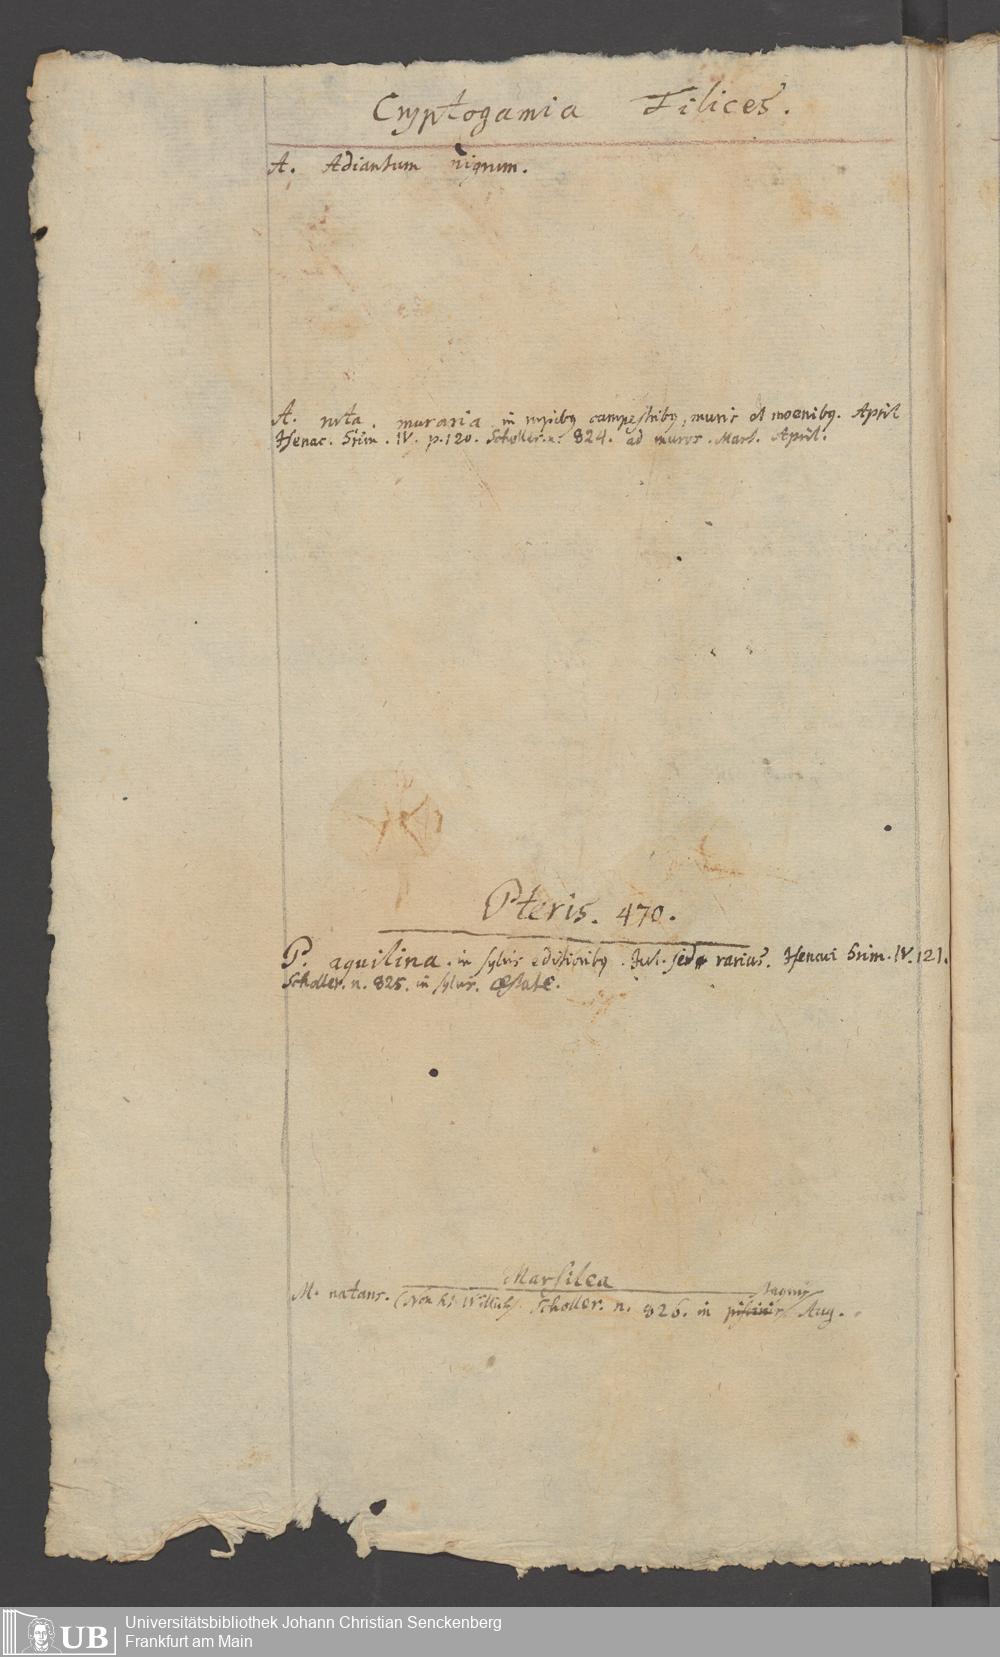 Cryptogamia Filices.
A. Adiantum nigrum.
A. ruta muraria in rupibq campestribq, muris et moenibq. April
Henac. Srim. IV. p. 120. Scholler. n. 824. ad muros. Mart. April.
Pteris. 470.
P. aquilina. in sylvis editioribq. Jul. sed rarius. Henaci Srim. IV. 121.
Scholler. n. 825. in sylvis. æstate.
Marsilea
M. natans. Scholler. n. 826. in Aug.
Universitätsbibliothek Johann Christian Senckenberg
UB
Frankfurt am Main